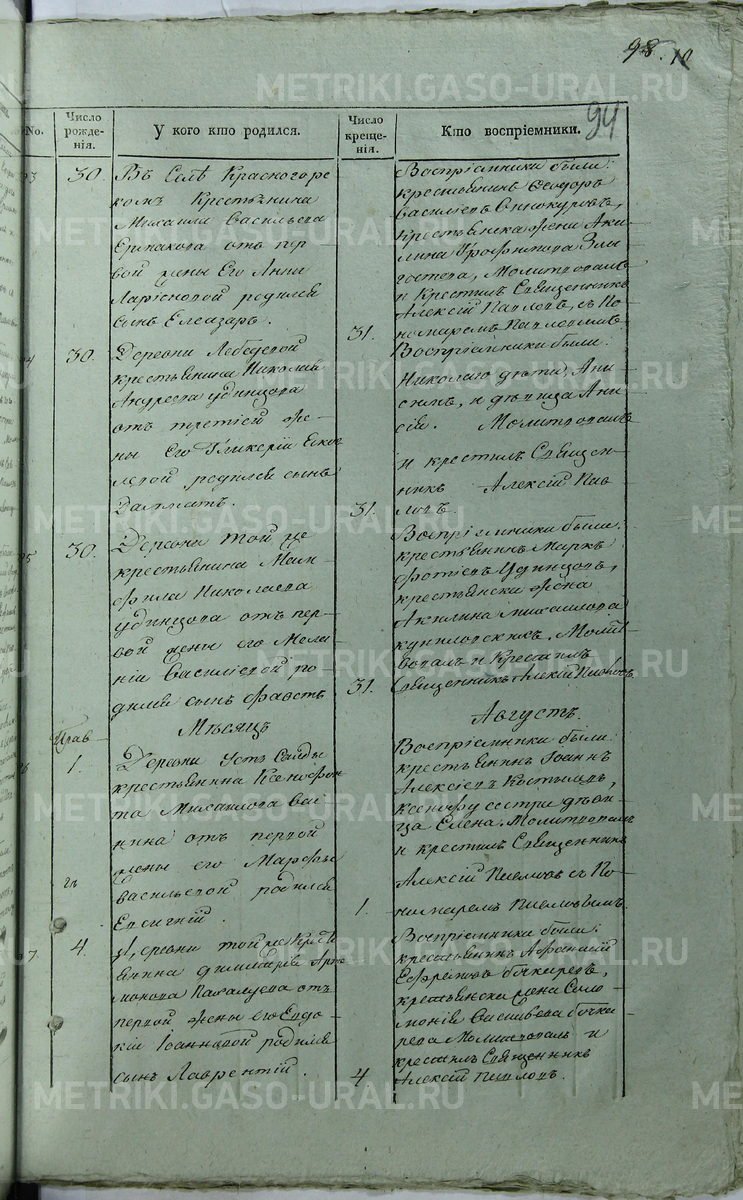 98.
94
No.
Число рожденія.
У кого кто родился.
Число крещенія.
Кто воспріемники.
30.
Въ Селѣ Красногоре
комъ Крестьянина
Михаила Васильева
Ермакова отъ пер
вой жены Его Анны
родился
сынъ Елеазаръ.
31.
Воспріемники были:
крестьянинъ Ѳеодоръ
Василіевъ
крестьянска жена Аки
лина Трофимова
Молитвовалъ
и Крестилъ Священникъ
Алексій Павловъ, съ По
номаремъ Павловымъ.
30.
Деревни Лебедевой
крестьянина Николая
Андреева Удинцова
отъ третіей же
ны Его Гликеріи
родился сынъ
Далматъ.
31.
Воспріемники были:
Николаю дѣти Ани
симъ, и дѣвица Ани
сія. Молитвовалъ
и крестилъ Священ
никъ Алексій Пав
ловъ.
30.
Деревни той же
крестьянина
Николаева
Удинцова отъ пер
вой жены его Мела
ніи Василіевой ро
дился сынъ Фавстъ
31.
Воспріемники были:
крестьянинъ Маркъ
Фотіевъ Удинцовъ,
крестьянска жена
Акилина Михаилова
Молит
вовалъ и Крестилъ
Священникъ Алексій Павловъ.
Мѣсяцъ
Августъ.
1.
Деревни Усть Салды
крестьянина Ксенофон
та Михаилова
отъ первой
жены его Марфы
Васильевой родился
1.
Воспріемники были:
крестьянинъ Іоаннъ
Алексіевъ Костылевъ,
Ксенофу сестра дѣви
ца Елена. Молитвовалъ
и крестилъ Священникъ
Алексій Павловъ съ По
номаремъ Павловымъ.
4.
Деревни той же Крест
янина Димитрія Арте
монова Пахалуева отъ
первой жены его Евдо
кіи Іоанновой родился
сынъ Лаврентій.
4.
Воспріемники были:
крестьянинъ Афанасій
Ефремовъ Бочкаревъ,
крестьянска жена Соло
монія Васильева Бочка
рева Молитвовалъ и
крестилъ Священникъ
Алексій Павловъ.
METRIKI.GASO-URAL.RU